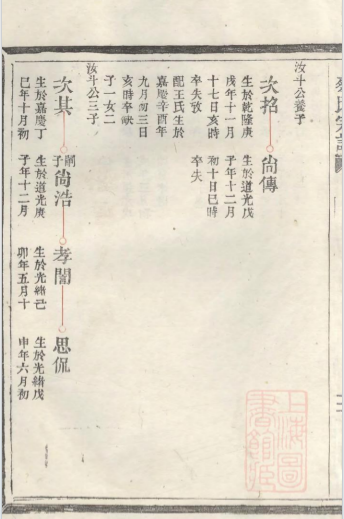 汝斗公養子
次招
生於乾隆庚
戌年十一月
十七日亥時
卒失攷
配王氏生於
嘉慶辛酉年
九月初三日
亥時卒缺
子一女二
尙傳
生於道光戊
子年十二月
初十日巳時
卒失
汝斗公三子
次其
生於嘉慶丁
巳年十月初
嗣子尙浩
生於道光庚
子年十二月
孝誾
生於光緒己
卯年五月十
思侃
生於光緖戊
申年六月初
上海圖書館藏